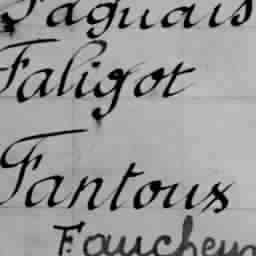 Faguais
Faligot
Fantoux
Faucheux